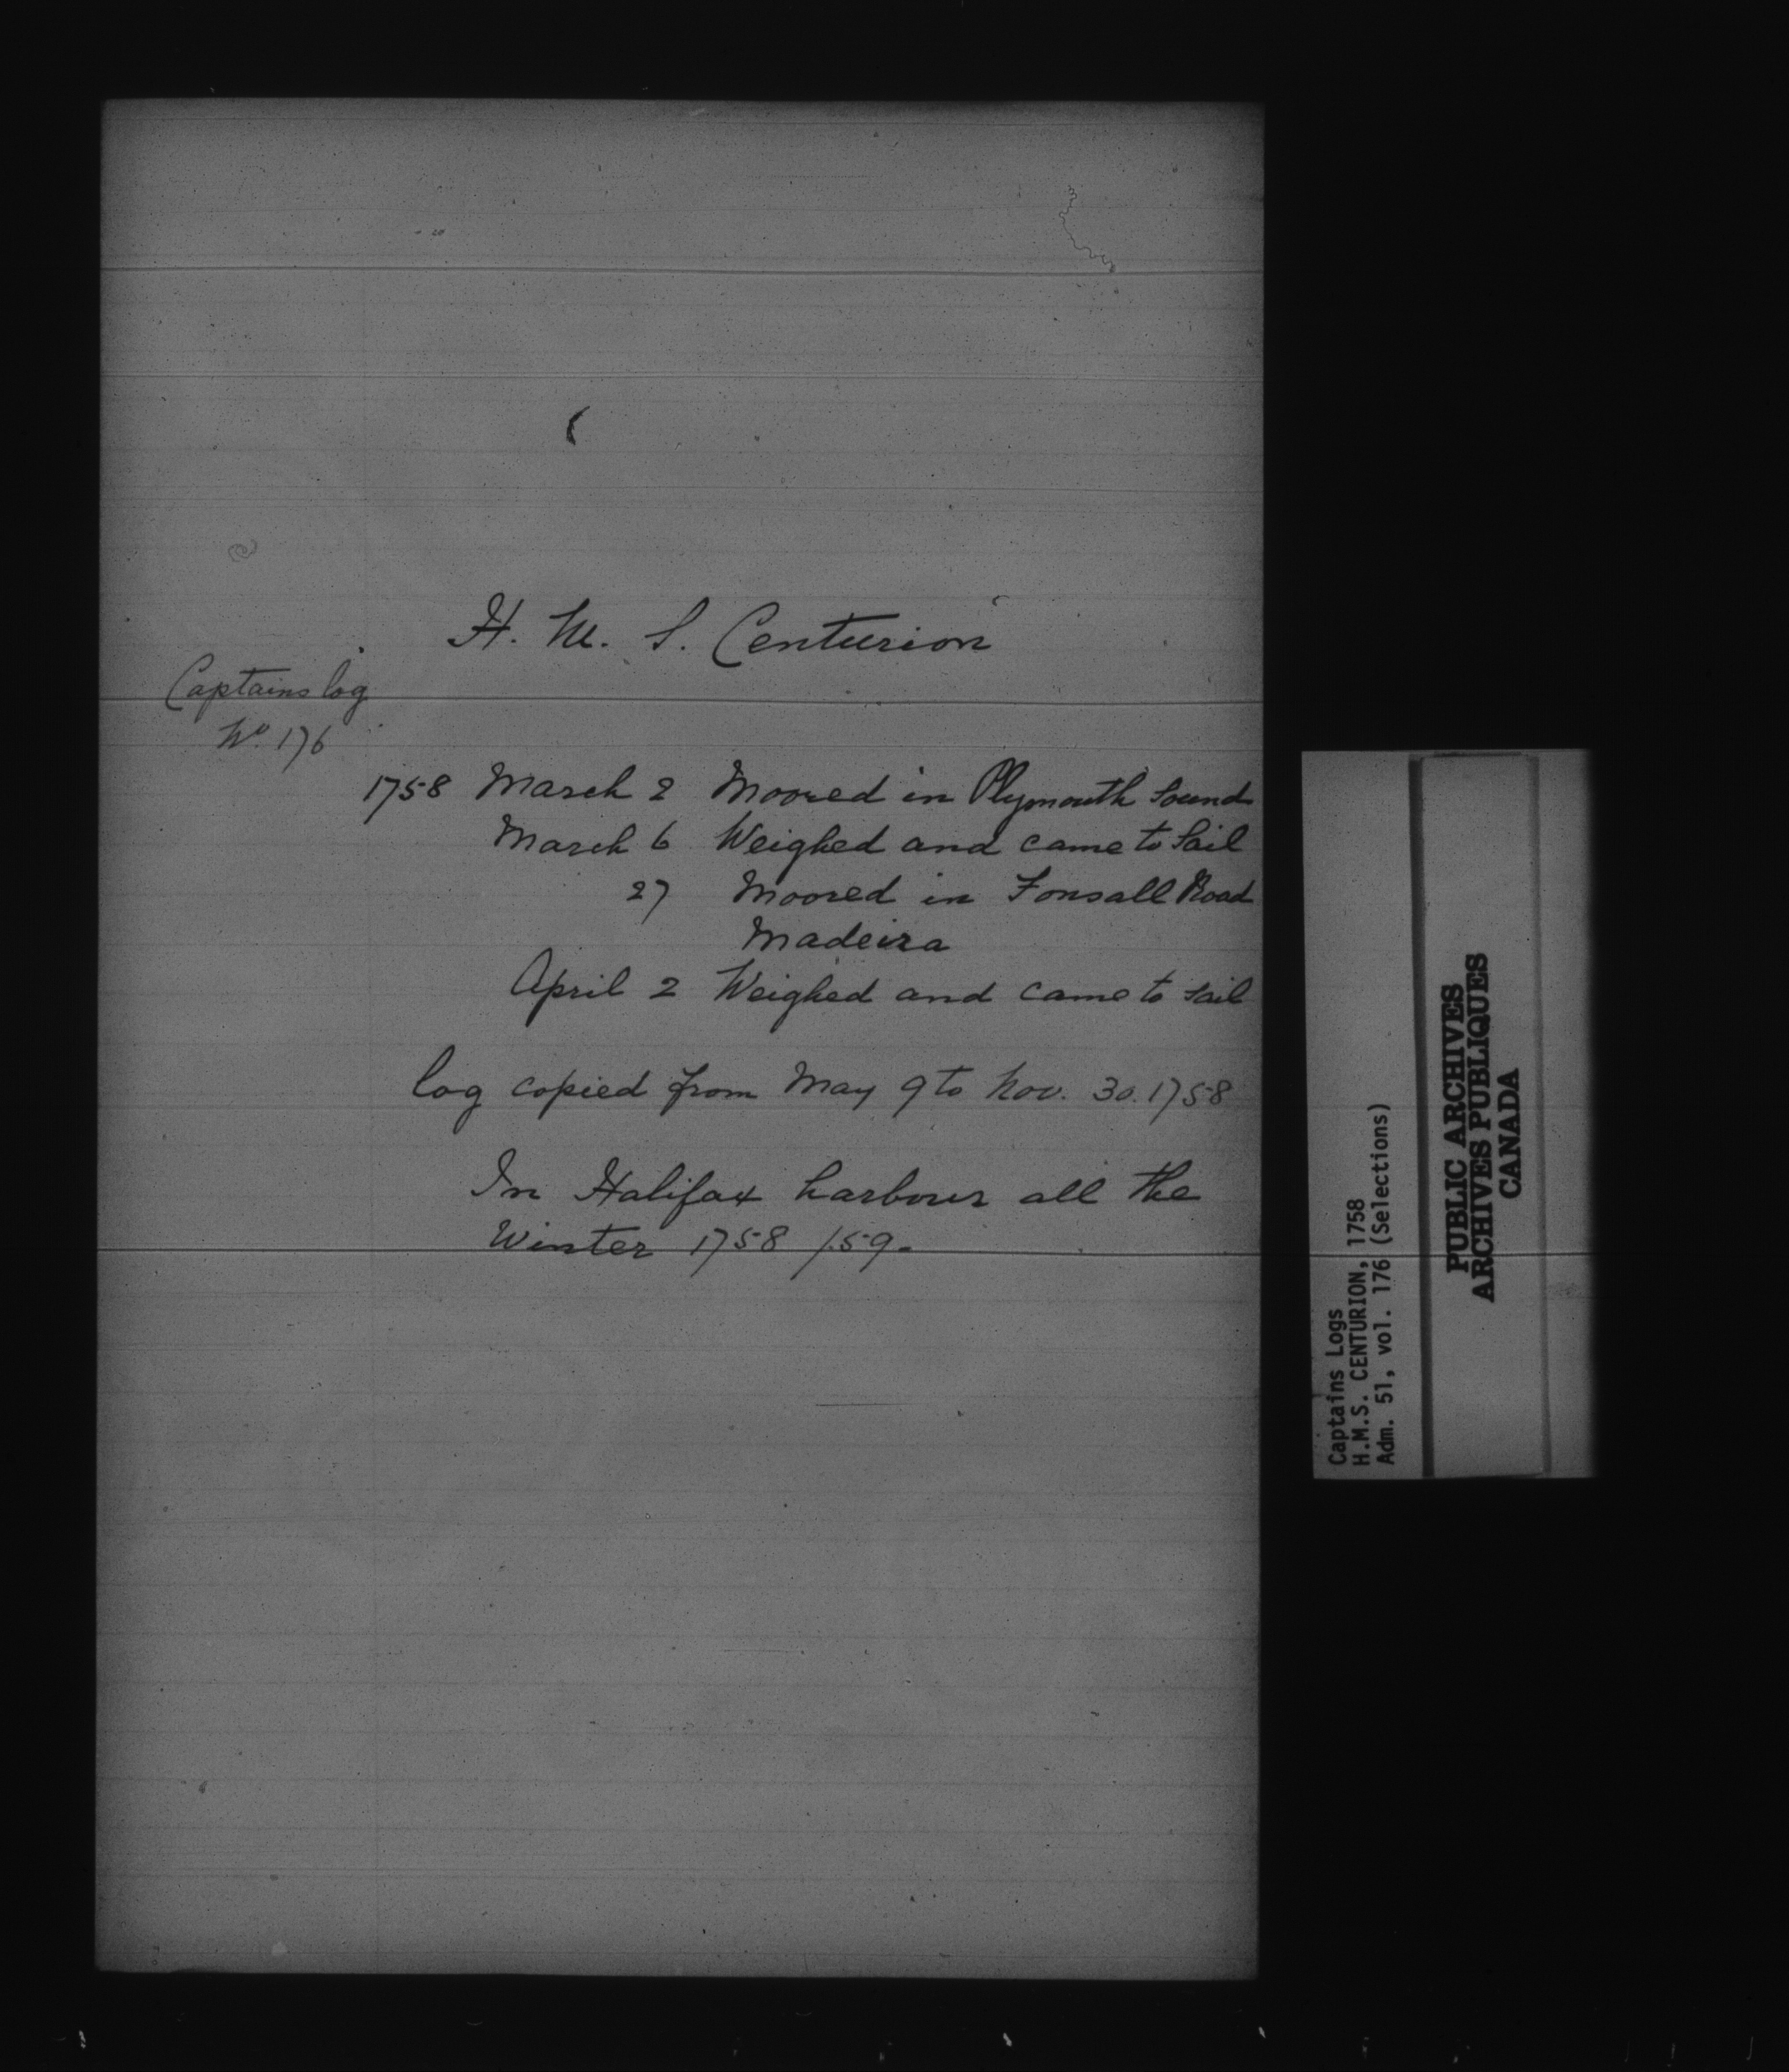 H. M. S. Centurion
Captains log
No. 176
1758 March 2 Moored in Plymouth Sound
March 6 Weighed and came to Sail
27 Moored in Fonsall Road
Madeira
April 2 Weighed and came to sail
log copied from May 9 to Nov. 30. 1758
In Halifax harbour all the
Winter 1758 / 59.
Captains Logs
H.M.S. CENTURION, 1758
Adm. 51, vol. 176 (Selections)
PUBLIC ARCHIVES
ARCHIVES PUBLIQUES
CANADA